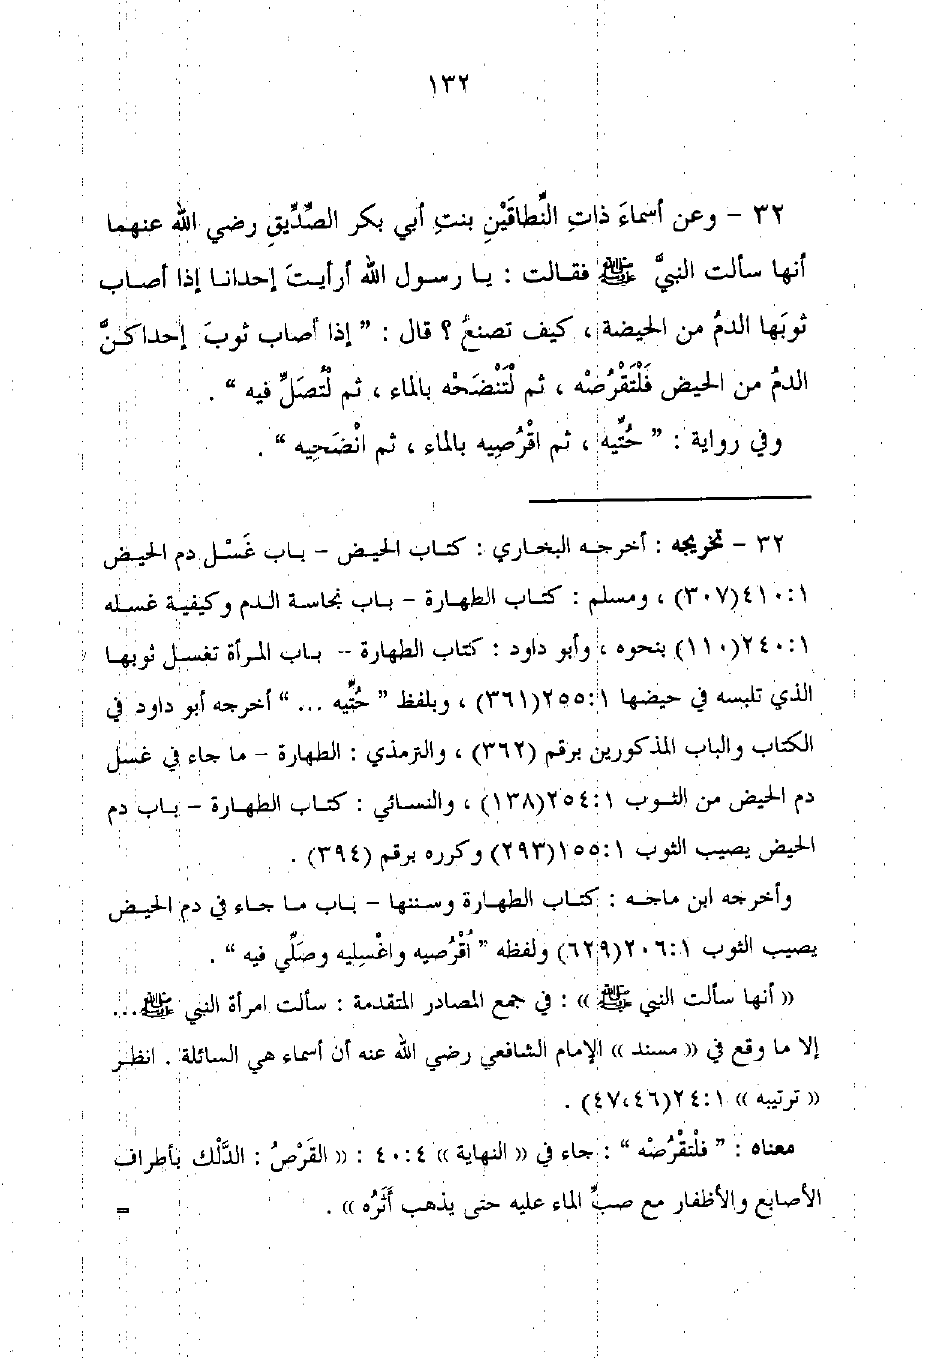 ١٣٢
٣٢ – وعن أسماءَ ذاتِ النِّطاقَيْنِ بنتِ أبي بكر الصِّدِّيقِ رضي الله عنهما
أنها سألت النبيَّ ﷺ فقالت : يا رسول الله أرأيتَ إحدانا إذا أصاب
ثوبَها الدمُ من الحيضة ، كيف تصنعُ ؟ قال : ” إذا أصاب ثوبَ إحداكنَّ
الدمُ من الحيض فَلْتَقْرُصْه ، ثم لْتَنْضَحْه بالماء ، ثم لْتُصَلِّ فيه “ .
وفي رواية : ” حُتِّيه ، ثم اقْرُصِيه بالماء ، ثم انْضَحِيه “ .
٣٢ – تخريجه : أخرجه البخاري : كتاب الحيض – باب غَسْل دم الحيض
١:٤١٠(٣٠٧) ، ومسلم : كتاب الطهارة – باب نجاسة الدم وكيفية غسله
١:٢٤٠(١١٠) بنحوه ، وأبو داود : كتاب الطهارة -- باب المرأة تغسل ثوبها
الذي تلبسه في حيضها ١:٢٥٥(٣٦١) ، وبلفظ ” حُتِّيه ... “ أخرجه أبو داود في
الكتاب والباب المذكورين برقم (٣٦٢) ، والترمذي : الطهارة – ما جاء في غسل
دم الحيض من الثوب ١:٢٥٤(١٣٨) ، والنسائي : كتاب الطهارة – باب دم
الحيض يصيب الثوب ١:١٥٥(٢٩٣) وكرره برقم (٣٩٤) .
وأخرجه ابن ماجه : كتاب الطهارة وسننها – باب ما جاء في دم الحيض
يصيب الثوب ١:٢٠٦(٦٢٩) ولفظه ” اُقْرُصيه واغْسِليه وصَلِّي فيه “ .
« أنها سألت النبي ﷺ » : في جمع المصادر المتقدمة : سألت امرأة النبي ﷺ...
إلا ما وقع في « مسند » الإمام الشافعي رضي الله عنه أن أسماء هي السائلة . انظر
« ترتيبه » ١:٢٤(٤٧،٤٦) .
معناه : ” فلْتقْرُصْه “ : جاء في « النهاية » ٤:٤٠ : « القَرْصُ : الدَّلْك بأطراف
الأصابع والأظفار مع صبِّ الماء عليه حتى يذهب أَثَرُه » .
=